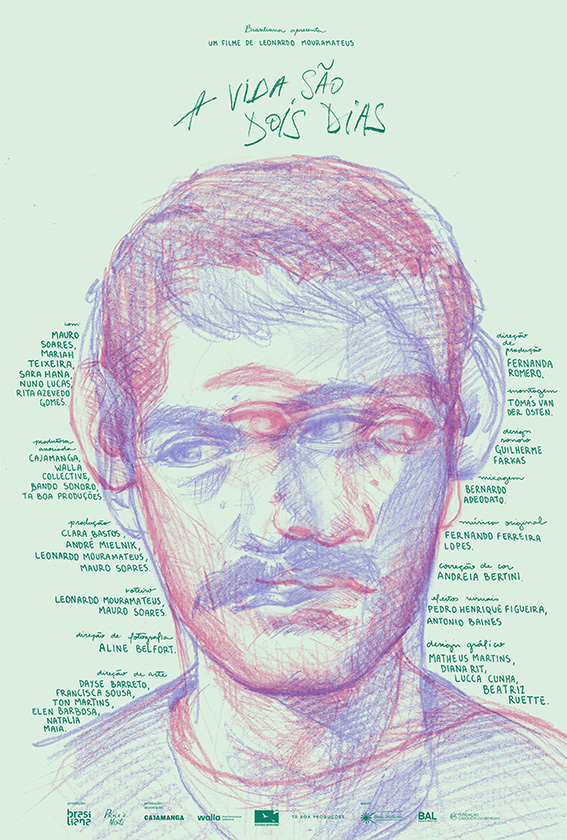 Brasiliana apresenta
UM FILME DE LEONARDO MOURAMATEUS
A VIDA SÃO
DOIS DIAS
com
MAURO
SOARES,
MARIAH
TEIXEIRA,
SARA HANA,
NUNO LUCAS,
RITA AZEVEDO
GOMES.
produtora
associada
CAJAMANGA,
WALLA
COLLECTIVE,
BANDO SONORO,
TA BOA PRODUÇÕES
produção
CLARA BASTOS,
ANDRÉ MIELNIK,
LEONARDO MOURAMATEUS,
MAURO SOARES.
roteiro
LEONARDO MOURAMATEUS,
MAURO SOARES.
direção de fotografia
ALINE BELFORT.
direção de arte
DAYSE BARRETO,
FRANCISCA SOUSA,
TON MARTINS,
ELEN BARBOSA,
NATALIA
MAIA.
direção
de
produção
FERNANDA
ROMERO.
montagem
TOMÁS VAN
DER OSTEN.
design
sonoro
GUILHERME
FARKAS
mixagem
BERNARDO
ADEODATO.
música original
FERNANDO FERREIRA
LOPES.
correção de cor
ANDRÉIA BERTINI.
efeitos visuais
PEDRO HENRIQUE FIGUEIRA,
ANTONIO BAINES
design gráfico
MATHEUS MARTINS,
DIANA RIT,
LUCCA CUNHA,
BEATRIZ
RUETTE.
produção
brasiliana
CAJAMANGA
walla
TÁ BOA PRODUÇÕES
BAL
FUNDAÇÃO
CALOUSTE GULBENKIAN